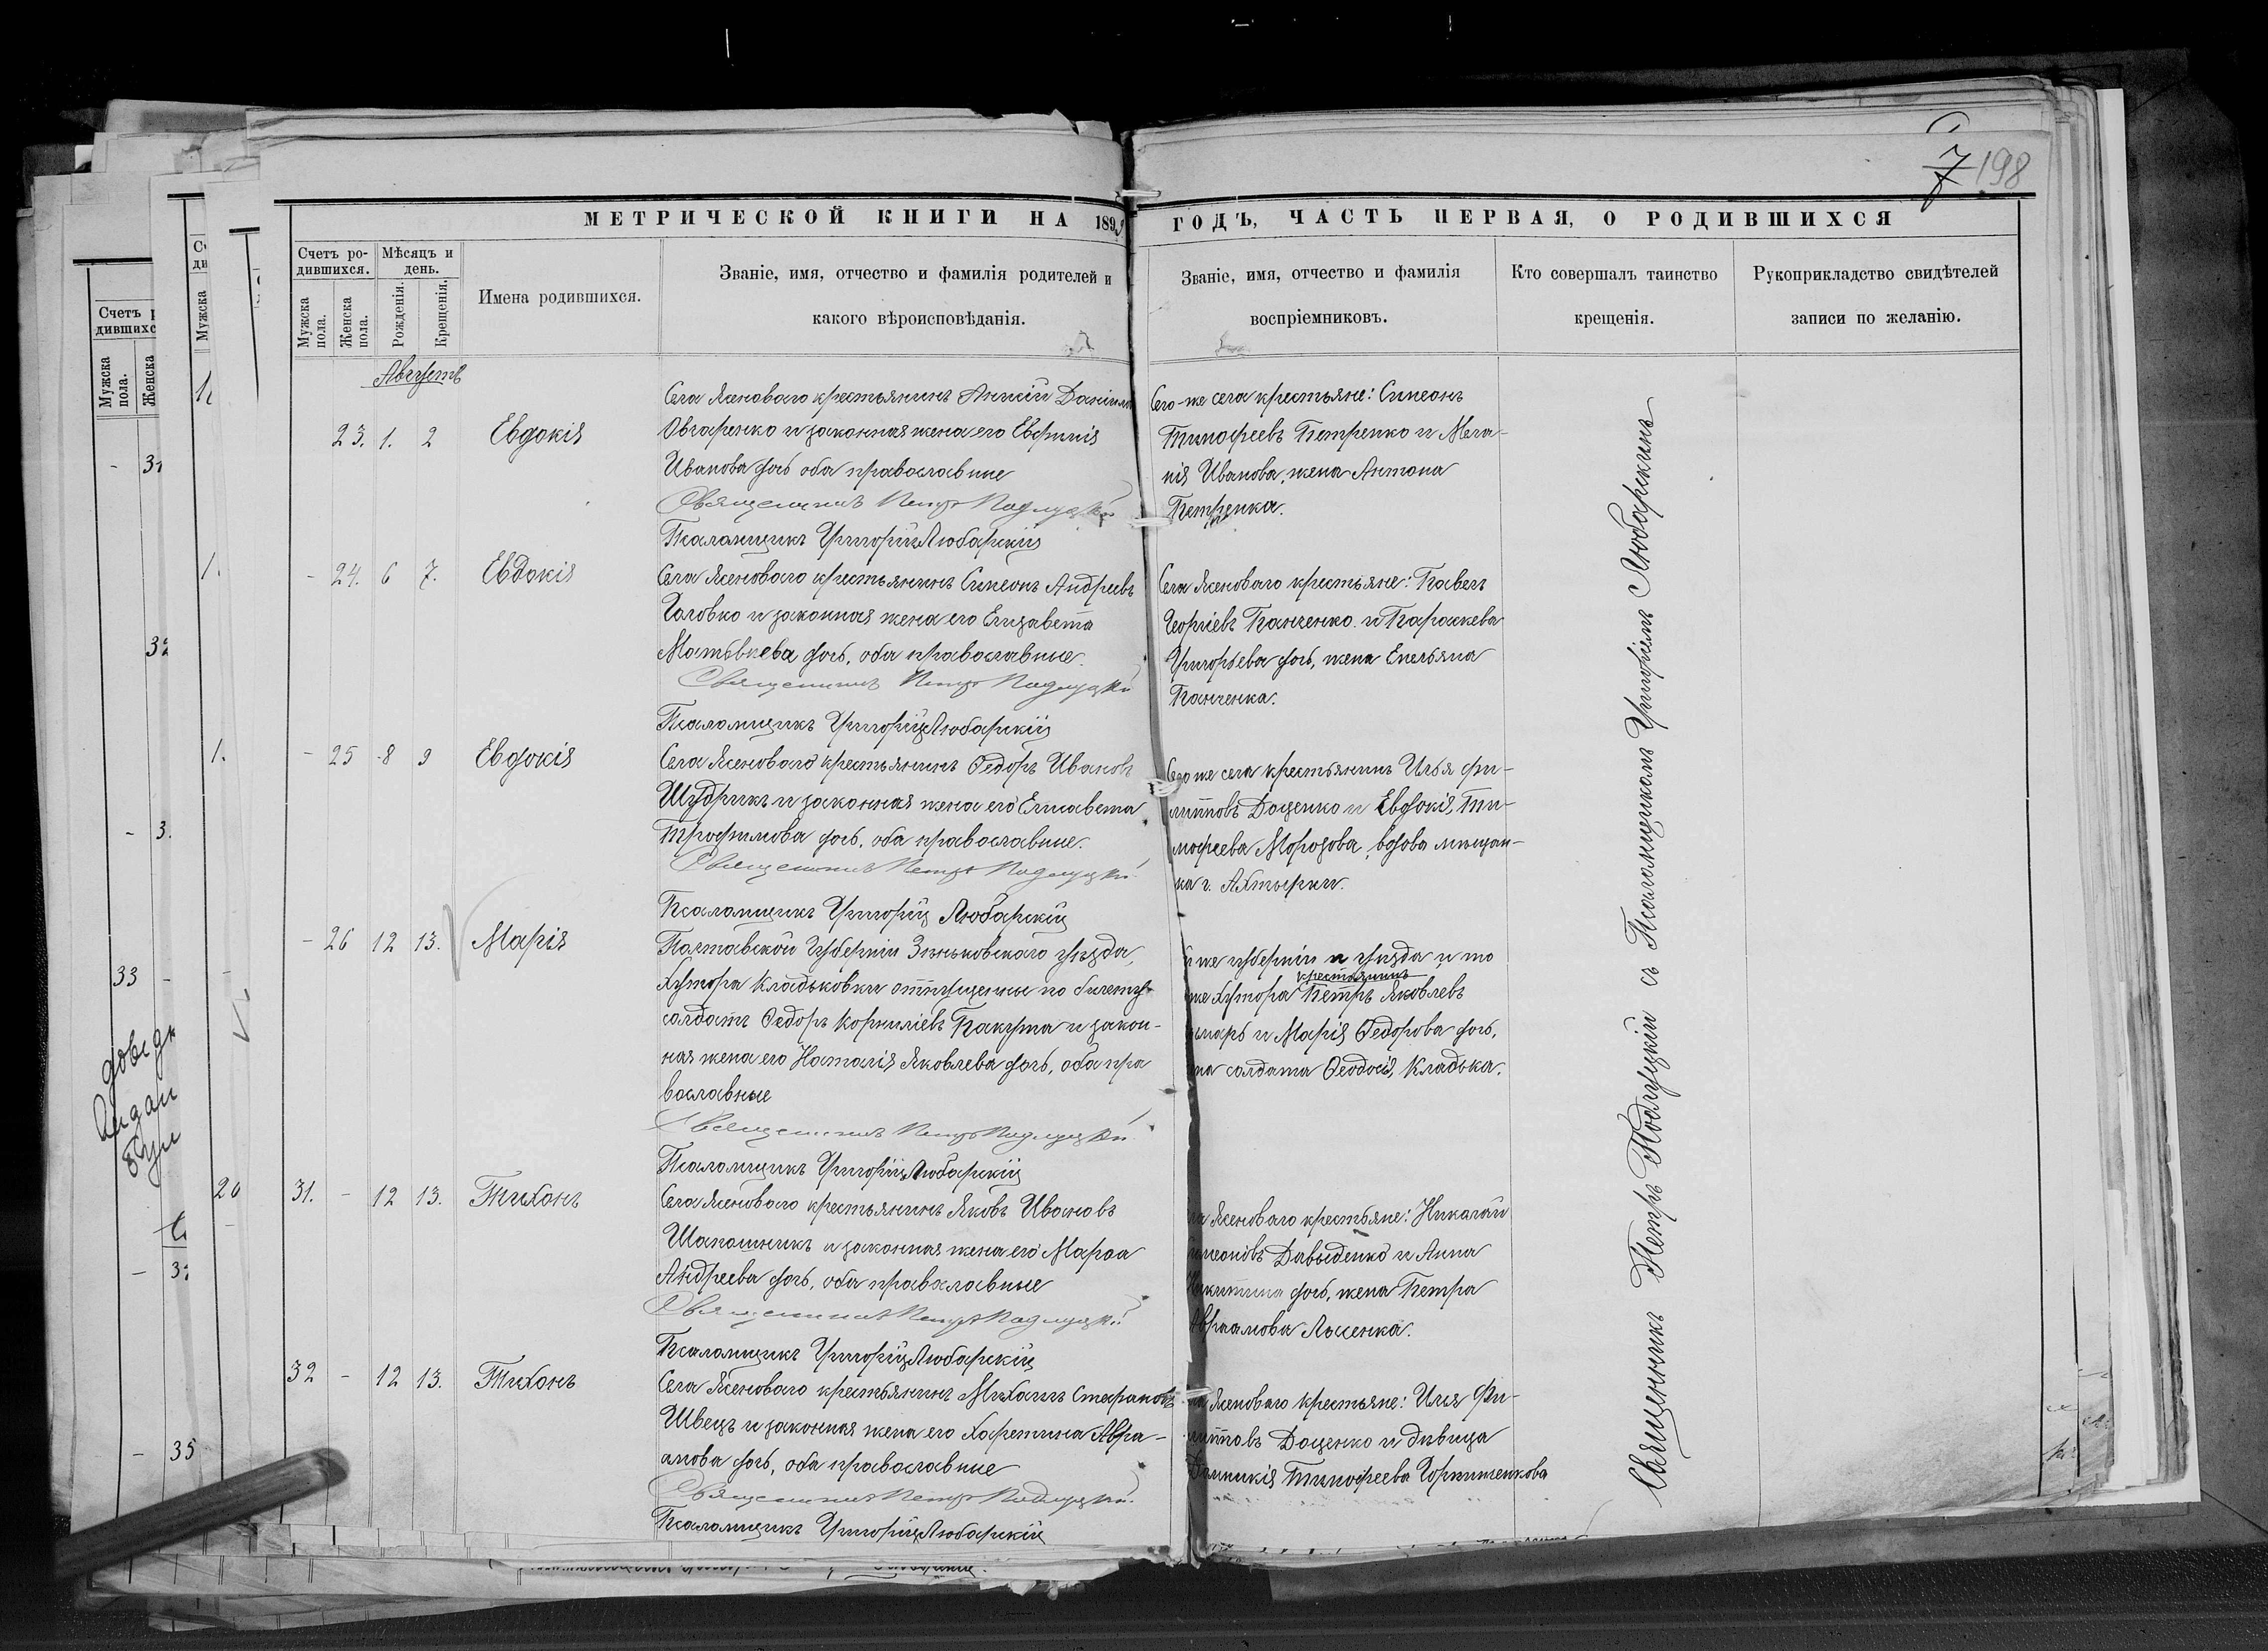 7 198
МЕТРИЧЕСКОЙ КНИГИ НА 189 ГОДЪ, ЧАСТЬ ПЕРВАЯ, О РОДИВШИХСЯ
Счетъ родившихся.
Мужска пола.
Женска пола.
Мѣсяцъ и день.
Рожденія.
Крещенія.
Имена родившихся.
Званіе, имя, отчество и фамилія родителей и
какого вѣроисповѣданія.
Званіе, имя, отчество и фамилія
воспріемниковъ.
Кто совершалъ таинство
крещенія.
Рукоприкладство свидѣтелей
записи по желанію.
Августъ
23. 1. 2 Евдокія
Села Ясеноваго крестьянинъ
Овчаренко и законная жена его Евфимія
Иванова дочь оба православные
Священникъ Петръ Подлуцкій
Псаломщикъ Григорій Любарскій
Сего-же села крестьяне: Симеонъ
Тимофеевъ Петренко и Мела-
нія Иванова, жена Антона
Петренка.
- 24. 6 7. Евдокія
Села Ясеноваго крестьянинъ Симеонъ Андреевъ
Головко и законная жена его Елизавета
Матѳѣева дочь, оба православные.
Священникъ Петръ Подлуцкій
Псаломщикъ Григорій Любарскій
Села Ясеноваго крестьяне: Павелъ
Георгіевъ Панченко и Параскева
Григорьева дочь, жена Емельяна
Панченка.
- 25 8 9 Евдокія
Села Ясеноваго крестьянинъ Ѳедоръ Ивановъ
Шудрикъ и законная жена его Елисавета
Трофимова дочь, оба православные.
Священникъ Петръ Подлуцкій
Псаломщикъ Григорій Любарскій
Сего же села крестьянинъ Илья Фи-
липповъ Доценко и Евдокія Ти-
мофеева Морозова, вдова мѣщан-
ка г. Ахтырки.
- 26 12 13. Марія
Полтавской губерніи Зѣньковскаго уѣзда,
хутора Кладьковки отпущенные по билету
солдатъ Ѳедоръ Корниліевъ Пакута и закон-
ная жена его Наталія Яковлева дочь, оба пра
вославные
Священникъ Петръ Подлуцкій
Псаломщикъ Григорій Любарскій
й же губерніи и уѣзда и то
крестьянинъ
же хутора Петръ Яковлевъ
и Марія Ѳедорова дочь,
на солдата Ѳеодосія Кладька.
31. - 12 13. Тихонъ
Села Ясеноваго крестьянинъ Яковъ Ивановъ
Шапошникъ и законная жена его Марѳа
Андреева дочь, оба православные
Священникъ Петръ Подлуцкій
Псаломщикъ Григорій Любарскій
ла Ясеноваго крестьяне: Николай
имеоновъ Давыденко и Анна
Никитина дочь, жена Петра
Авраамова Лысенка.
32 - 12 13. Тихонъ
Села Ясеноваго крестьянинъ Михаилъ Стефановъ
Швецъ и законная жена его Харитина Авра-
амова дочь, оба православные
Священникъ Петръ Подлуцкій
Псаломщикъ Григорій Любарскій
ла Ясеноваго крестьяне: Илья Фи-
липповъ Доценко и дѣвица
Домникія Тимофеева
Священникъ Петръ Подлуцкій съ Псаломщикомъ Григоріемъ Любарскимъ